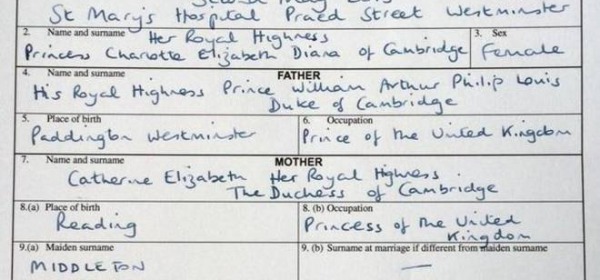 St Mary's Hospital Praed Street Westminster
2. Name and surname Her Royal Highness 3. Sex
Princess Charlotte Elizabeth Diana of Cambridge Female
4. Name and surname FATHER
His Royal Highness Prince William Arthur Philip Louis
Duke of Cambridge
5. Place of birth 6. Occupation
Paddington Westminster Prince of the United Kingdom
7. Name and surname MOTHER
Catherine Elizabeth Her Royal Highness
The Duchess of Cambridge
8.(a) Place of birth 8. (b) Occupation
Reading Princess of the United
Kingdom
9.(a) Maiden surname 9. (b) Surname at marriage if different from maiden surname
MIDDLETON —